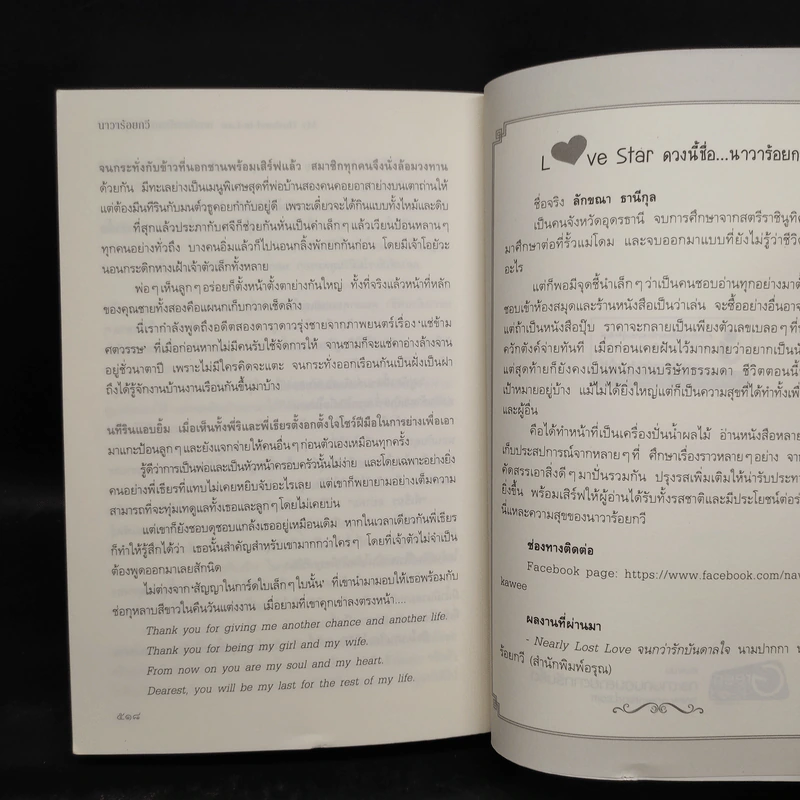 นาวาร้อยกวี
จนกระทั่งกับข้าวที่นอกชานพร้อมเสิร์ฟแล้ว สมาชิกทุกคนจึงนั่งล้อมวงทาน
ด้วยกัน มีทะเลย่างเป็นเมนูพิเศษสุดที่พ่อบ้านสองคนคอยอาสาย่างบนเตาถ่านให้
แต่ต้องมีนทีรินกับมนต์วธูคอยกำกับอยู่ดี เพราะเดี๋ยวจะได้กินแบบทั้งไหม้และดิบ
ที่สุกแล้วประภากับศจีก็ช่วยกันหั่นเป็นคำเล็กๆ แล้วเวียนป้อนหลานๆ
ทุกคนอย่างทั่วถึง บางคนอิ่มแล้วก็ไปนอนกลิ้งพักยกกันก่อน โดยมีเจ้าโอยัวะ
นอนกระดิกหางเฝ้าเจ้าตัวเล็กทั้งหลาย
พ่อๆ เห็นลูกๆ อร่อยก็ตั้งหน้าตั้งตาย่างกันใหญ่ ทั้งที่จริงแล้วหน้าที่หลัก
ของคุณชายทั้งสองคือแผนกเก็บกวาดเช็ดล้าง
นี่เรากำลังพูดถึงอดีตสองดาราดาวรุ่งชายจากภาพยนตร์เรื่อง 'แช่ข้าม
ศตวรรษ' ที่เมื่อก่อนหากไม่มีคนรับใช้จัดการให้ จานชามก็จะแช่คาอ่างล้างจาน
อยู่ชั่วนาตาปี เพราะไม่มีใครคิดจะแตะ จนกระทั่งออกเรือนกันเป็นฝั่งเป็นฝา
ถึงได้รู้จักงานบ้านงานเรือนกันขึ้นมาบ้าง
นทีรินแอบยิ้ม เมื่อเห็นทั้งพี่ริและพี่เธียรตั้งอกตั้งใจโชว์ฝีมือในการย่างเพื่อเอา
มาแกะป้อนลูกๆ และยังแจกจ่ายให้คนอื่นๆ ก่อนตัวเองเหมือนทุกครั้ง
รู้ดีว่าการเป็นพ่อและเป็นหัวหน้าครอบครัวนั้นไม่ง่าย และโดยเฉพาะอย่างยิ่ง
คนอย่างพี่เธียรที่แทบไม่เคยหยิบจับอะไรเลย แต่เขาก็พยายามอย่างเต็มความ
สามารถที่จะทุ่มเทดูแลทั้งเธอและลูกๆ โดยไม่เคยบ่น
แต่เขาก็ยังชอบดุชอบแกล้งเธออยู่เหมือนเดิม หากในเวลาเดียวกันพี่เธียร
ก็ทำให้รู้สึกได้ว่า เธอนั้นสำคัญสำหรับเขามากกว่าใครๆ โดยที่เจ้าตัวไม่จำเป็น
ต้องพูดออกมาเลยสักนิด
ไม่ต่างจาก 'สัญญาในการ์ดใบเล็กๆ ใบนั้น' ที่เขานำมามอบให้เธอพร้อมกับ
ช่อกุหลาบสีขาวในคืนวันแต่งงาน เมื่อยามที่เขาคุกเข่าลงตรงหน้า....
Thank you for giving me another chance and another life.
Thank you for being my girl and my wife.
From now on you are my soul and my heart.
Dearest, you will be my last for the rest of my life.
๕๑๘
L ve Star ดวงนี้ชื่อ...นาวาร้อยก
ชื่อจริง ลักขณา ธานีกุล
เป็นคนจังหวัดอุดรธานี จบการศึกษาจากสตรีราชินูทิศ
มาศึกษาต่อที่รั้วแม่โดม และจบออกมาแบบที่ยังไม่รู้ว่าชีวิต
อะไร
แต่ก็พอมีจุดชี้นำเล็กๆ ว่าเป็นคนชอบอ่านทุกอย่างมาตั้
ชอบเข้าห้องสมุดและร้านหนังสือเป็นว่าเล่น จะซื้ออย่างอื่นอาจ
แต่ถ้าเป็นหนังสือปุ๊บ ราคาจะกลายเป็นเพียงตัวเลขเบลอๆ ที่
ควักตังค์จ่ายทันที เมื่อก่อนเคยฝันไว้มากมายว่าอยากเป็นนั
แต่สุดท้ายก็ยังคงเป็นพนักงานบริษัทธรรมดา ชีวิตตอนนี้
เป้าหมายอยู่บ้าง แม้ไม่ได้ยิ่งใหญ่แต่ก็เป็นความสุขที่ได้ทำทั้งเพื่
และผู้อื่น
คือได้ทำหน้าที่เป็นเครื่องปั่นน้ำผลไม้ อ่านหนังสือหลาย
เก็บประสบการณ์จากหลายๆ ที่ ศึกษาเรื่องราวหลายๆ อย่าง จา
คัดสรรเอาสิ่งดีๆ มาปั่นรวมกัน ปรุงรสเพิ่มเติมให้น่ารับประทา
ยิ่งขึ้น พร้อมเสิร์ฟให้ผู้อ่านได้รับทั้งรสชาติและมีประโยชน์ต่อร่
นี่แหละความสุขของนาวาร้อยกวี
ช่องทางติดต่อ
Facebook page: https://www.facebook.com/nav
kawee
ผลงานที่ผ่านมา
- Nearly Lost Love จนกว่ารักบันดาลใจ นามปากกา น
ร้อยกวี (สำนักพิมพ์อรุณ)